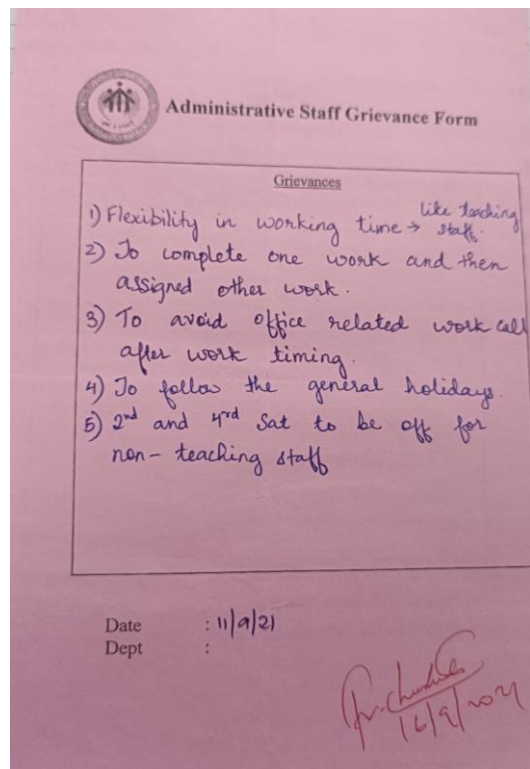 Administrative Staff Grievance Form
Grievances
1) Flexibility in working time → like teaching staff.
2) To complete one work and then
assigned other work.
3) To avoid office related work call
after work timing.
4) To follow the general holidays.
5) 2nd and 4rd Sat to be off for
non-teaching staff
Date : 11/9/21
Dept :
16/9/2021